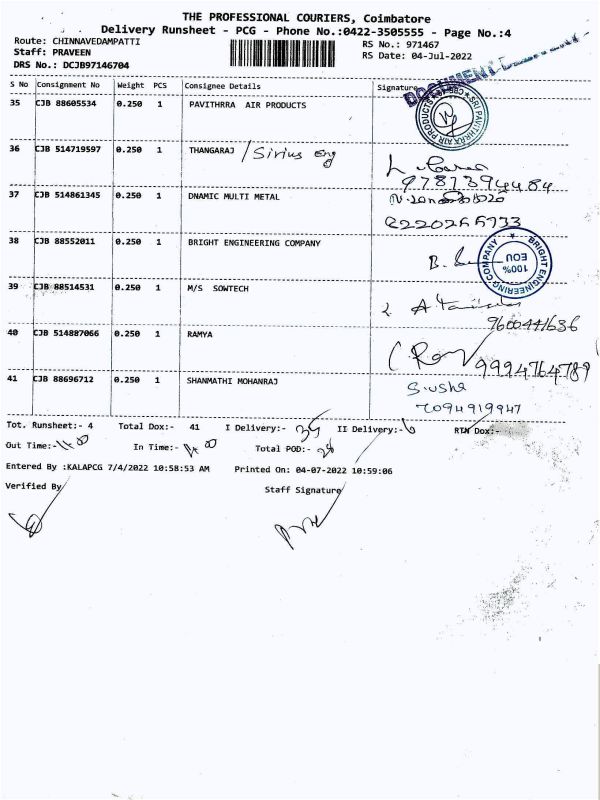 THE PROFESSIONAL COURIERS, Coimbatore
Delivery Runsheet - PCG - Phone No.:0422-3505555 - Page No.:4
Route: CHINNAVEDAMPATTI
RS No.: 971467
Staff: PRAVEEN
RS Date: 04-Jul-2022
DRS No.: DCJB97146704
S No Consignment No Weight PCS Consignee Details Signature
35 CJB 88605534 0.250 1 PAVITHRRA AIR PRODUCTS
36 CJB 514719597 0.250 1 THANGARAJ / Sirius eng
9787394484
37 CJB 514861345 0.250 1 DNAMIC MULTI METAL
38 CJB 88552011 0.250 1 BRIGHT ENGINEERING COMPANY
BRIGHT ENGINEERING COMPANY
100% EOU
39 CJB 88514531 0.250 1 M/S SOWTECH
9600441636
40 CJB 514887066 0.250 1 RAMYA
9994764789
41 CJB 88696712 0.250 1 SHANMATHI MOHANRAJ
S.usha
7094919947
Tot. Runsheet:- 4 Total Dox:- 41 I Delivery:- 35 II Delivery:- 6 RTN Dox:-
Out Time:- In Time:- Total POD:-
Entered By :KALAPCG 7/4/2022 10:58:53 AM Printed On: 04-07-2022 10:59:06
Verified By
Staff Signature